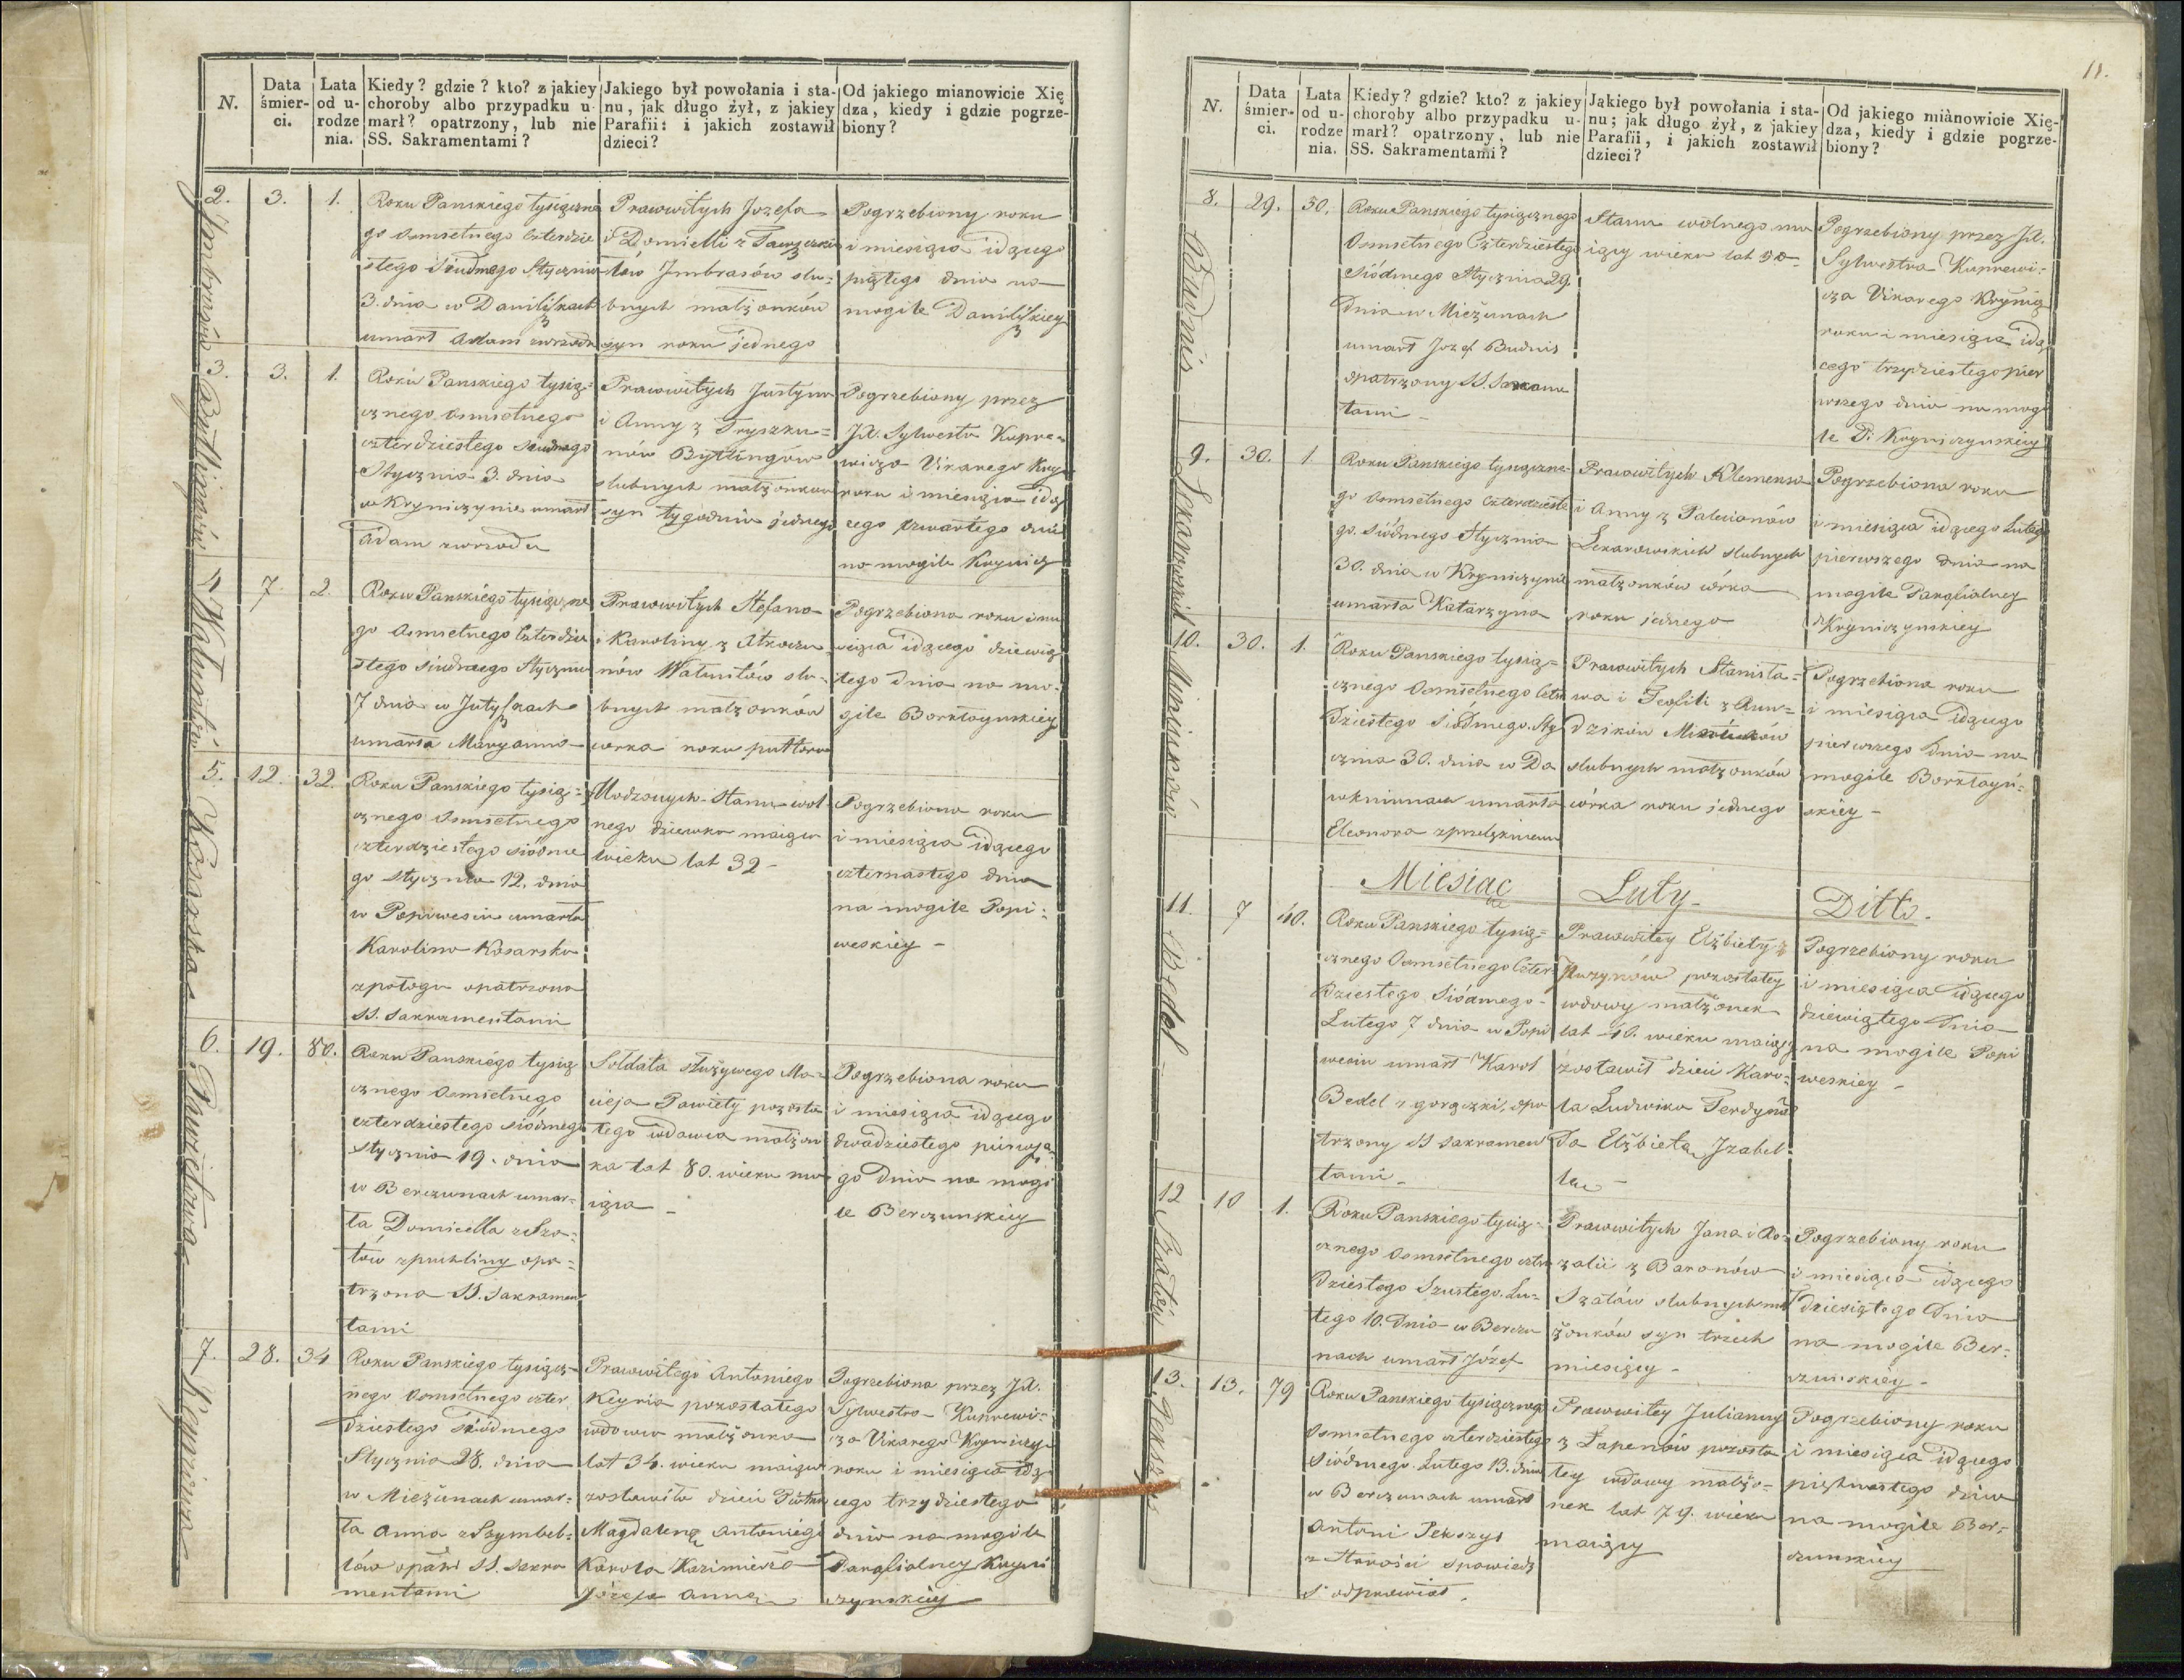 N.
Data śmierci.
Lata od urodzenia.
Kiedy? gdzie? kto? z jakiey
choroby albo przypadku u-
marł? opatrzony, lub nie
SS. Sakramentami?
Jakiego był powołania i sta-
nu, jak długo żył, z jakiey
Parafii: i jakich zostawił
dzieci?
Od jakiego mianowicie Xię
dza, kiedy i gdzie pogrze-
biony?
2.
Imbrasów
3.
1.
Roku Panskiego tysiączne
go osmsetnego czterdzie
stego siudmego Stycznia
3. dnia w Daniliszkach
umarł Adam zwrzodu
Prawowitych Jozefa
i Domicelli z
Imbrasów slu-
bnych małżonków
syn roku jednego
Pogrzebiony roku
i miesiąca idącego
piątego dnia na
mogile Daniliszkiey
3.
3.
1.
Roku Panskiego tysią-
cznego osmsetnego
czterdziestego siudmego
Stycznia 3. dnia
w Kryniczynie umarł
Adam zwrzodu
Prawowitych Justyna
i Anny z Tryszku-
nów Bytlingów
slubnych małżonków
syn tygodnia jednego
Pogrzebiony przez
JX. Sylwestra Kupre-
wicza Vikarego Kry
roku i miesiąca idą
cego czwartego dnia
na mogile Krynicz
Watuntów
7
2.
Roku Panskiego tysiączne
go osmsetnego czterdzie
stego siudmego Stycznia
7 dnia w Jutyszkach
umarła Maryanna
Prawowitych Stefana
i Karoliny z
nów Watuntów slu-
bnych małżonków
corka roku puttora
Pogrzebiona roku i mie
siąca idącego dziewią
tego dnia na mo-
gile Borktoynskiey
5.
Kosarska
12.
32.
Roku Panskiego tysią-
cznego osmsetnego
czterdziestego siódme
go stycznia 12. dnia
w Popiwesiu umarła
Karolina Kosarska
zpołogu opatrzona
SS. Sakramentami
Urodzonych stanu wol
nego dziewka maiąca
wieku lat 32-
Pogrzebiona roku
i miesiąca idącego
czternastego dnia
na mogile Popi-
weskiey -
6.
Pawietowa
19.
80.
Roku Panskiego tysią
cznego osmsetnego
czterdziestego siódmego
stycznia 19. dnia
w Berczunach umar-
ła Domicella z Sza-
tów zpuchliny opa-
trzona SS. Sakramen
tami
Soldata służywego Ma-
cieja Pawiety pozosta
tego wdowca małżon
ka lat 80. wieku ma
iąca -
Pogrzebiona roku
i miesiąca idącego
dwadziestego pierwsze
go dnia na mogi
le Berczunskiey
7.
28.
34
Roku Panskiego tysiącz-
nego osmsetnego czter
dziestego siódmego
Stycznia 28. dnia
w Mieżunach umar-
ła Anna z Szymbeb-
łów opatrz SS. sakra
mentami
Prawowitego Antoniego
Keynia pozostałego
wdowca małżonka
lat 34. wieku maiąca
zostawiła dzieci Piotra
Magdalenę Antoniego
Karola Kazimierza
Józefa Annę
Pogrzebiona przez JX.
Sylwestra Kuprewi-
cza Vikarego Kryniczy
roku i miesiąca idą
cego trzydziestego
dnia na mogile
Parafialney Kryni
czynskiey
11.
N.
Data śmierci.
Lata od urodzenia.
Kiedy? gdzie? kto? z jakiey
choroby albo przypadku u-
marł? opatrzony, lub nie
SS. Sakramentami?
Jakiego był powołania i sta-
nu; jak długo żył, z jakiey
Parafii, i jakich zostawił
dzieci?
Od jakiego mianowicie Xię-
dza, kiedy i gdzie pogrze-
biony?
8.
Budnis
29.
50.
Roku Panskiego tysiącznego
Osmsetnego Czterdziestego
siódmego stycznia 29.
dnia w Mieżunach
umarł Jozef Budnis
opatrzony SS. Sakramen
tami -
Stanu wolnego ma
iący wieku lat 50-
Pogrzebiony przez JX.
Sylwestra Kuprewi-
cza Vikarego Krynicz
roku i miesiąca idą
cego trzydziestego pier
wszego dnia na mogi
le P. Kryniczynskiey
9.
30.
1.
Roku Panskiego tysiączne-
go osmsetnego czterdzieste
go siódmego Stycznia
30. dnia w Kryniczynie
umarła Katarzyna
Prawowitych Klemensa
i Anny z Palecionów
Lekarowskich slubnych
małżonków córka
roku jednego
Pogrzebiona roku
i miesiąca idącego Lutego
pierwszego dnia na
mogile Parafialney
Kryniczynskiey
10.
30.
1.
Roku Panskiego tysią-
cznego osmsetnego czter
dziestego siódmego Sty
cznia 30. dnia w Da
umarła
Eleonora
Prawowitych Stanisła-
wa i Teofili z Run-
dzików
slubnych małżonków
córka roku jednego
Pogrzebiona roku
i miesiąca idącego
pierwszego dnia na
mogile Borktoyń-
skiey -
Miesiąc Luty- Ditto.
11.
Bedel
7
40.
Roku Panskiego tysią-
cznego Osmsetnego Czter
dziestego siódmego-
Lutego 7 dnia w Popi
wesiu umarł Karol
Bedel z gorączki, opa
trzony SS sakramen
tami -
Prawowitey Elżbiety z
pozostałey
wdowy małżonek
lat 40. wieku maiący
zostawił dzieci Karo-
la Ludwika Ferdyna
da Elżbieta, Izabel
la -
Pogrzebiony roku
i miesiąca idącego
dziewiątego dnia
na mogile Popi
weskiey -
12
Szatów
10
1.
Roku Panskiego tysią-
cznego osmsetnego czter
dziestego szustego Lu-
tego 10. dnia w Berczu
nach umarł Józef
Prawowitych Jana i Ro-
zalii z Baranów
Szatów slubnych mał
żonków syn trzech
miesięcy -
Pogrzebiony roku
i miesiąca idącego
dziesiątego dnia
na mogile Ber-
czunskiey -
13.
Pekszys
13.
79
Roku Panskiego tysiącznego
osmsetnego czterdziestego
siódmego Lutego 13. dnia
w Berczunach umarł
Antoni Pekszys
z starości spowiedz
S. odprawiał.
Prawowitey Julianny
z Łapenów pozosta
łey wdowy małżo-
nek lat 79. wieku
maiący
Pogrzebiony roku
i miesiąca idącego
piętnastego dnia
na mogile Ber-
czunskiey